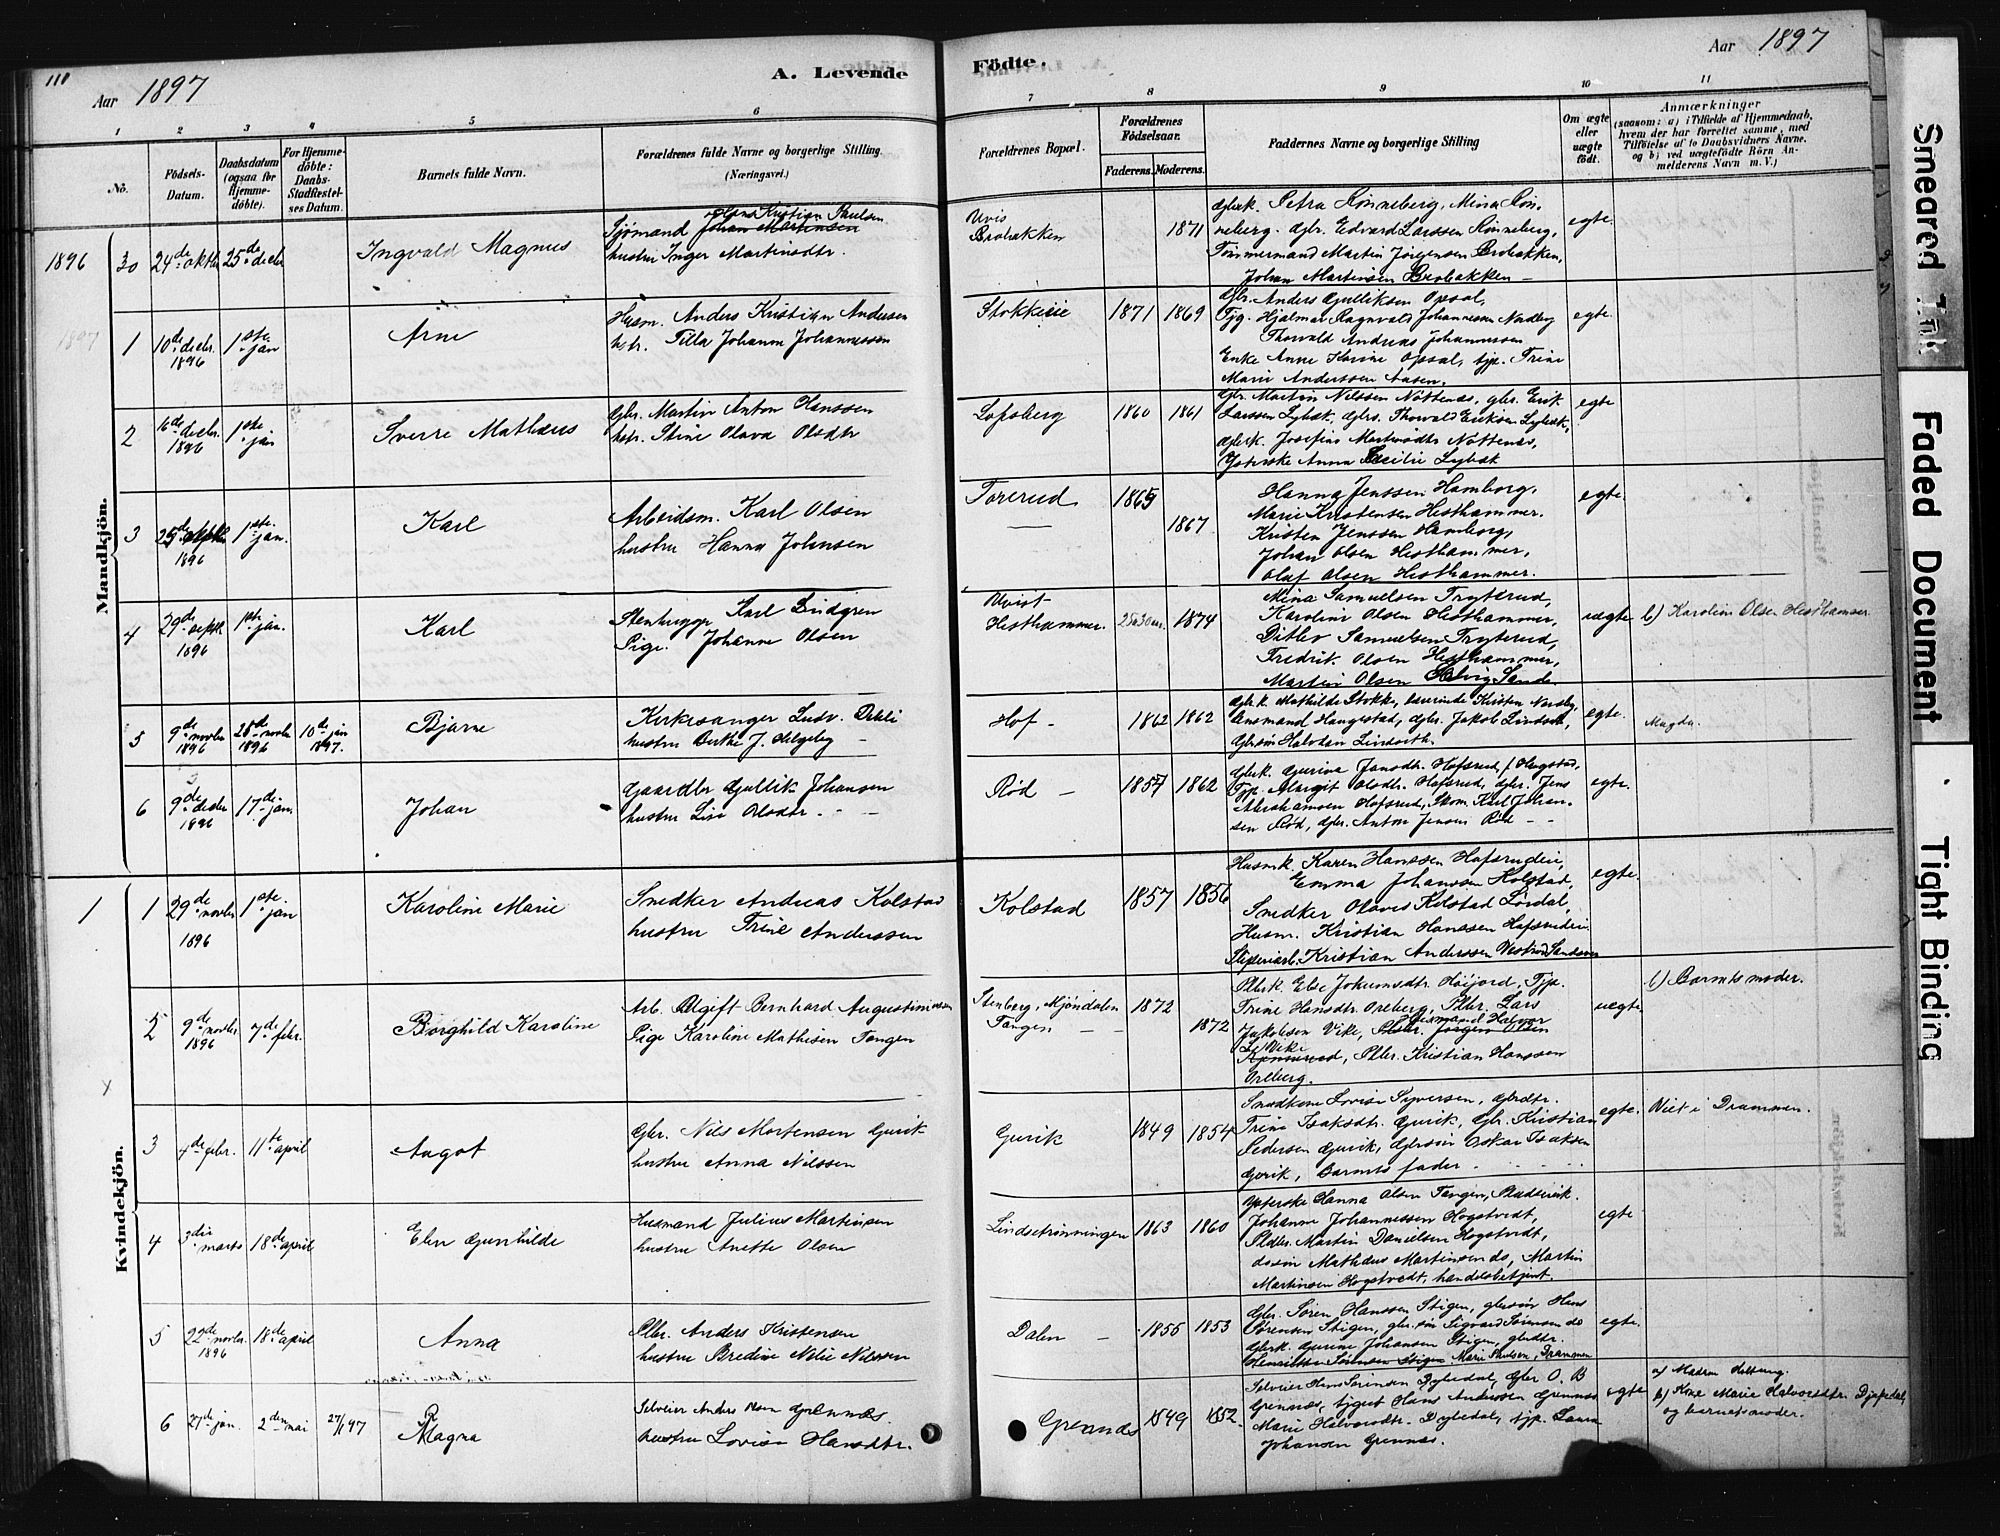 110
Aar 1897
A. Levende
Födte.
Aar 1897
1 2 3 4 5 6 7 8 9 10 11
No.
Födsels-Datum.
Daabsdatum (ogsaa for Hjemme-döbte).
For Hjemme-döbte: Daabs-Stadfæstelses Datum.
Barnets fulde Navn.
Forældrenes fulde Navne og borgerlige Stilling.
(Næringsvei.)
Forældrenes Bopæl.
Forældrenes Födselsaar.
Faderens. Moderens.
Faddernes Navne og borgerlige Stilling
Om ægte eller uægte födt.
Anmærkninger
(saasom: a) i Tilfælde af Hjemmedaab, hvem der har forrettet samme, med Tilföielse af to Daabsvidners Navne, og b) ved uægtefödte Börn Anmelderens Navn m. V.)
Mandkjön.
1896 30 24de oktbr 25de decbr
Ingvald Magnus
Hans Kristian Paulsen
Sjømand Johan Martinsen
hustru Inger Martinsdtr.
Uvis
Brobakken
1871
Gbrk. Petra Rønneberg, Mina Røn-
neberg. Gbr. Edvard Larssen Rønneberg,
Tømmermand Martin Jørgensen Brobakken,
Johan Martinsen Brobakken
egte.
1897 1 10de decbr. 1896 1ste jan
Arne
Husm. Anders Kristian Andersen
hstr. Tilla Johanne Johannessen
Stokkeeie 1871 1869
Gbr. Anders Gulliksen Opsal,
Tjg. Hjalmar Ragnvald Johannessen
Thorvald Andreas Johannessen
Enke Anne Karine Opsal, tjp. Trine
Marie Anderssen Aasen.
egte.
2 16de decbr. 1896 1ste jan
Sverre Mathæus
Gbr. Martin Anton Hanssen
hstr. Stine Olava Olsdtr
Lofsberg 1860 1861
Gbr. Martin Nilssen Nøttenæs, gbr. Erik
Larssen Lybæk, gbrs. Thorvald Eriksen Lybæk,
gbrk. Josefine Martinsdtr Nøttenæs,
Anna Cecilie Lybæk
egte
3 1896 1ste jan.
Karl
Arbeidsm. Karl Olsen
hustru Hanna Johnsen
Torerud 1865 1867
Hanna Jenssen Hamborg,
Marie Kristensen Hesthammer.
Kristen Jenssen Hamborg,
Johan Olsen Hesthammer,
Olaf Olsen Hesthammer.
egte.
4 29de septbr 1896 1ste jan.
Karl
Stenhugger Karl Lindgren
Pige. Johanne Olsen
Uvist-
Hesthammer. 25 a 30 aar. 1874
Mina Samuelsen Tryterud,
Karoline Olsen Hesthammer,
Ditlev Samuelsen Tryterud,
Fredrik Olsen Hesthammer,
Martin Olsen Sande.
uegte. b) Karoline Olsen Hesthammer
5 9de novbr 1896 28de novbr 1896 10de jan 1897.
Bjarne
Kirkesanger Ludv.
hustru Berthe J. Helgeby
Hof - 1862 1862
Gbrk. Mathilde Stokke, Kirsten
Lensmand Haugestad, gbr. Jakob Lindseth,
Gbrsøn Halvdan Lindseth.
egte. Magda.
6 9de decbr 1896 17de jan.
Johan
Gaardbr Gullik Johansen
hustru Lise Olsdtr.
Rød 1857 1862
Gbrk. Gurina Jansdtr. Hofsrud,
Tjp. Margit Olsdtr. Hofsrud, gbr. Jens
Abrahamsen Hofsrud, Skom. Karl Johan-
sen Rød, gbr. Anton Jensen Rød
egte.
Kvindekjön.
1 1 29de novbr 1896 1ste jan
Karoline Marie
Snedker Andreas Kolstad
hustru Trine Anderssen
Kolstad 1857 1856
Husmk. Karen Hanssen Hofsrudeie,
Emma Johanssen Kolstad,
Snedker Olaves Kolstad Lørdal,
Husm. Kristian Hanssen Hofsrudeie.
Sliperiarb. Kristian Anderssen
egte.
2 9de novbr 1896 7de febr.
Borghild Karoline
Arb. Ugift Bernhard Augustinussen
Pige Karoline Mathisen Tangen
Stenberg, Mjøndalen
Tangen 1872 1872
Pbrk. Else Jokumsdtr. Høijord, Tjp.
Trine Hansdtr. Oreberg, Pbr. Lars
Jakobsen Vike, Husmand Halvor
Vike
Pbr. Kristian Hanssen
Oreberg.
uegte b) Barnets moder.
3 4de febr. 11te april
Aagot
Gbr. Nils Mortensen Gurik
hustru Anna Nilssen
Gurik 1849 1854
Snedkerk Lovise Syversen, gbrdtr.
Trine Isaksdtr. Gurik, Gbr. Kristian
Pedersen Gurik, Gbrsøn Oskar Isaksen
Gurik, Barnets fader.
egte. Viet i Drammen.
4 3die marts 18de april
Elen Gunhilde
Husmand Julius Martinsen
hustru Anette Olsen
Lindsetrønningen 1863 1860
Ysterske Hanna Olsen Tangen,
Johanne Johannessen Hogstvedt,
Pldbr. Martin Danielsen Hogstvedt,
do søn Mathæus Martinsen do, Martin
Martinsen Hogstvedt, handelsbetjent.
egte
5 22de novbr. 1896 18de april
Anna
Pbr. Anders Kristensen
hustru Bredine Nelie Nilssen
Dalen 1855 1853
Gbr. Søren Hanssen Stigen, gbrsøn Hans
Sørensen Stigen, gbr.søn Sigvard Sørensen do
Gbrk. Gurine Johansen Stigen, gbrdtr.
Henriette Sørensen Stigen Marie Paulsen, Drammen
egte.
6 27de jan. 2den mai 27/1 97
Ragna
Selveier Anders Olsen Grennæs.
hustru Lovise Hansdtr.
Grennæs 1849 1852
Selveier Hans Sørensen Dybedal, Gbr O. B
Grennæs, Hans Anderssen Grennæs
Marie Halvorsdtr. Dybedal, tjp. Laura
Johansen Grennæs.
egte
a) Madam Helling.
b) Kone Marie Halvorsdtr. Djupedal,
og barnets moder.
Smeared Ink
Faded Document
Tight Binding